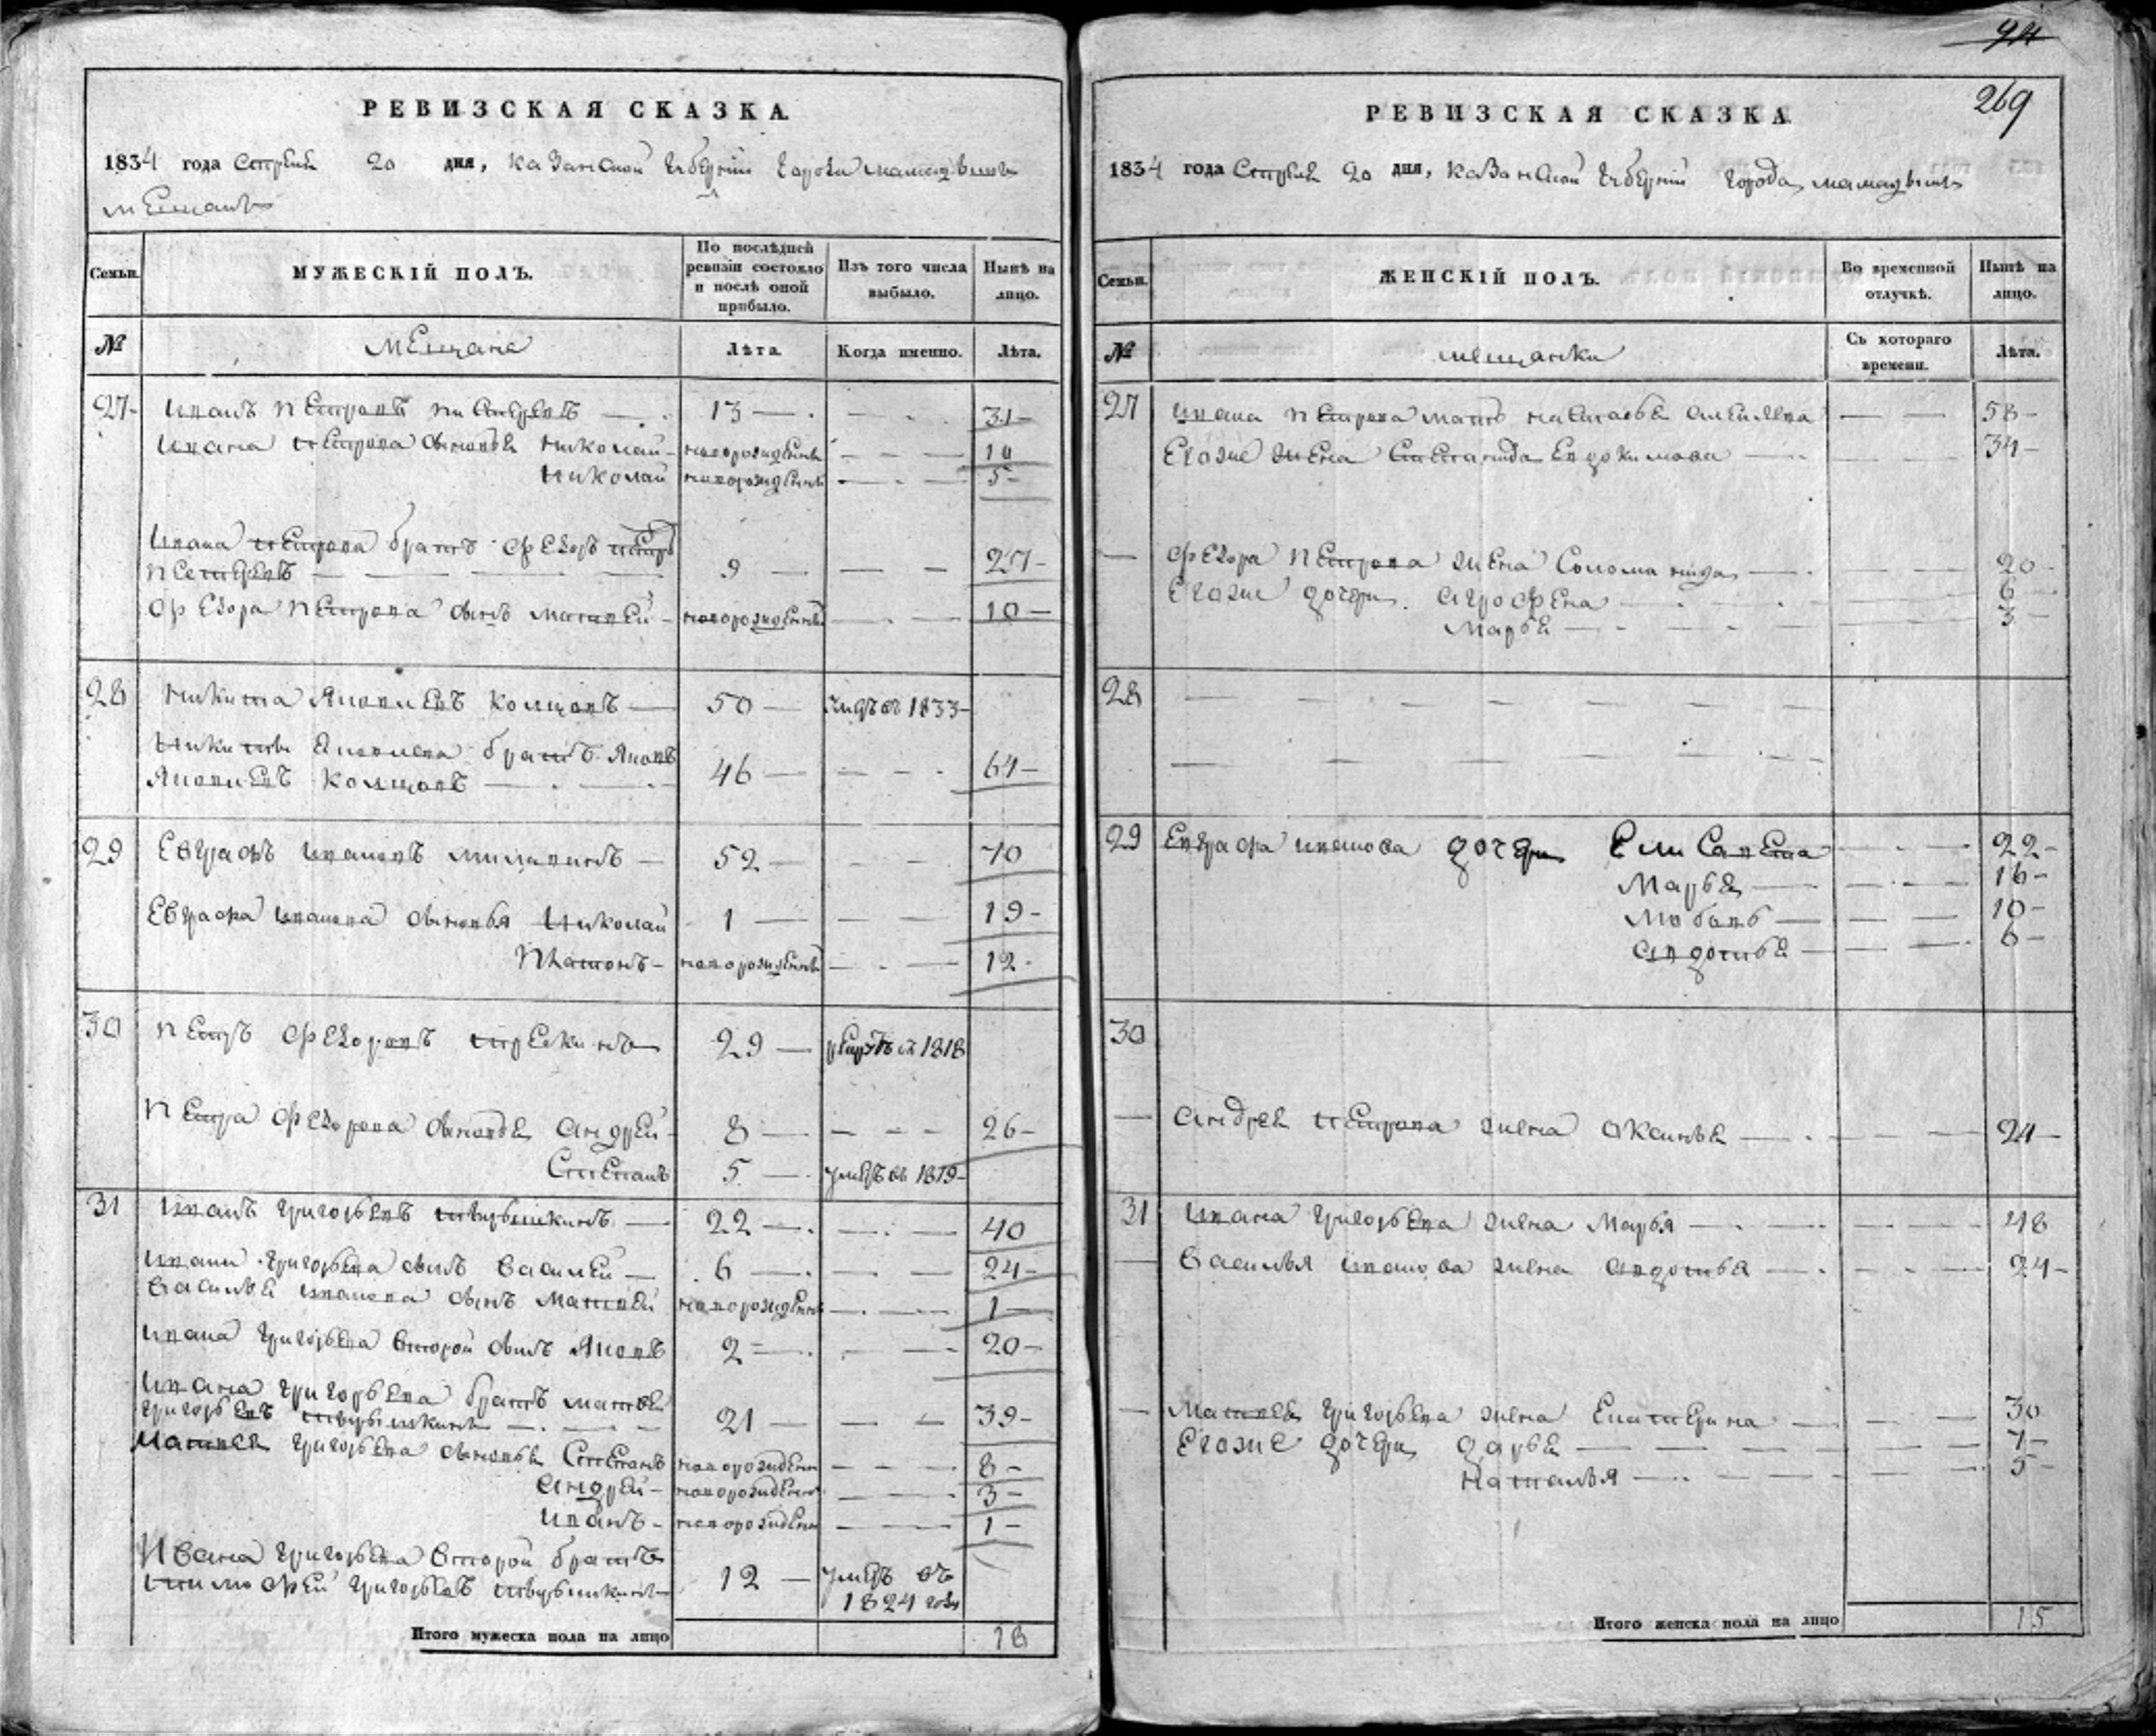 94
РЕВИЗСКАЯ СКАЗКА.
1834 года Апреля 20 дня, Казанской Губернии Города Мамадыша
мещанъ
Семьи. МУЖЕСКІЙ ПОЛЪ. По послѣдней ревизіи состояло и послѣ оной прибыло. Изъ того числа выбыло. Нынѣ на лицо.
№ Мещане Лѣта. Когда именно. Лѣта.
27 Иванъ Петровъ 13 31
Ивана Петрова сыновья Николай новорожденъ 10
Николай новорожденъ 5
Ивана Петрова братъ Федоръ Петровъ
9 27
Федора Петрова сынъ Матвей новорожденъ 10
28 Никита Яковлевъ Колцовъ 50 умеръ 1833
Никиты Яковлева братъ Яковъ
Яковлевъ Колцовъ 46 64
29 Евграфъ Ивановъ 52 70
Евграфа Иванова сыновья Николай 1 19
Платонъ новорожденъ 12
30 Петръ Федоровъ 29 1818
Петра Федорова сыновья Андрей 8 26
Степанъ 5 умеръ въ 1819
31 Иванъ Григорьевъ 22 40
Ивана Григорьева сынъ Василей 6 24
Василья Иванова сынъ Матвей новорожденъ 1
Ивана Григорьева второй сынъ Яковъ 2 20
Ивана Григорьева братъ Матвей
Григорьевъ 21 39
Матвея Григорьева сыновья Степанъ новорожденъ 8
Андрей новорожденъ 3
Иванъ новорожденъ 1
Ивана Григорьева второй братъ
Тимофей Григорьевъ 12 умеръ въ
1824 году
Итого мужеска пола на лицо 18
269
РЕВИЗСКАЯ СКАЗКА.
1834 года Апреля 20 дня, Казанской Губернии города Мамадыша
Семьи. ЖЕНСКІЙ ПОЛЪ. Во временной отлучкѣ. Нынѣ на лицо.
№ мещанки Съ котораго времени. Лѣта.
27 Ивана Петрова мать Настасья 58
Егоже жена Степанида Евдокимова 34
Федора Петрова жена Соломанида 20
Егоже дочери Агрофена 6
Марья 3
28
29 Евграфа Иванова дочери Елисавета 22
Марья 16
Любовь 10
Авдотья 6
30
Андрея Петрова жена Оксинья 24
31 Ивана Григорьева жена Марья 48
Василья Иванова жена Авдотья 24
Матвея Григорьева жена Екатерина 30
Егоже дочери Дарья 7
Наталья 5
Итого женска пола на лицо 15